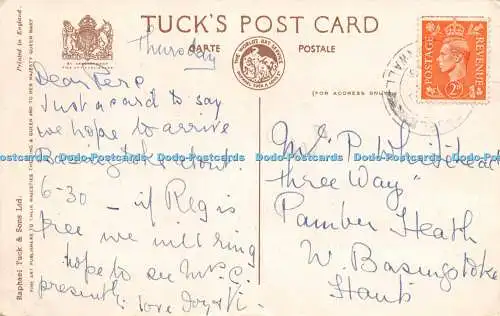 TUCK'S POST CARD
CARTE POSTALE
(FOR ADDRESS ONLY)
Printed in England.
Raphael Tuck & Sons Ltd.
FINE ART PUBLISHERS TO THEIR MAJESTIES THE KING & QUEEN AND TO HER MAJESTY QUEEN MARY
POSTAGE REVENUE
2D
Thursday
Dear
Just a card to say
we hope to arrive
about
6-30 – if Reg is
free we will ring
hope to see Mrs. C.
presently. love Joy &
Mr P. Whitehead
"Three Way"
Pamber Heath
W. Basingstoke
Hants
Postcards Postcards Postcards Postcards Postcards Postcards